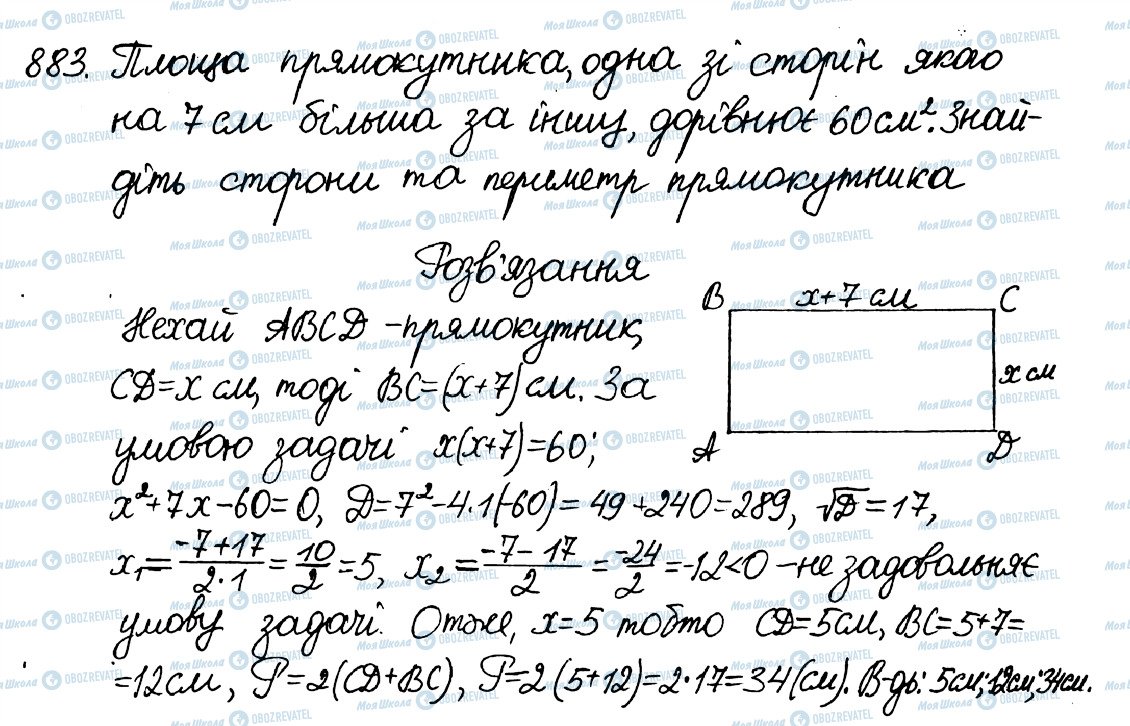 883. Площа прямокутника, одна зі сторін якого
на 7 см більша за іншу, дорівнює 60 см². Знай-
діть сторони та периметр прямокутника
Розв'язання
Нехай ABCD – прямокутник,
CD = x см, тоді BC = (x+7) см. За
умовою задачі x(x+7) = 60;
B x+7 см C
x см
A D
x² + 7x – 60 = 0, D = 7² – 4·1(-60) = 49 + 240 = 289, √D = 17,
x₁ = (-7+17)/(2·1) = 10/2 = 5, x₂ = (-7-17)/2 = -24/2 = -12 < 0 – не задовольняє
умову задачі. Отже, x = 5 тобто CD = 5 см, BC = 5+7 =
= 12 см, P = 2(CD+BC), P = 2(5+12) = 2·17 = 34 (см). В-дь: 5 см; 12 см; 34 см.